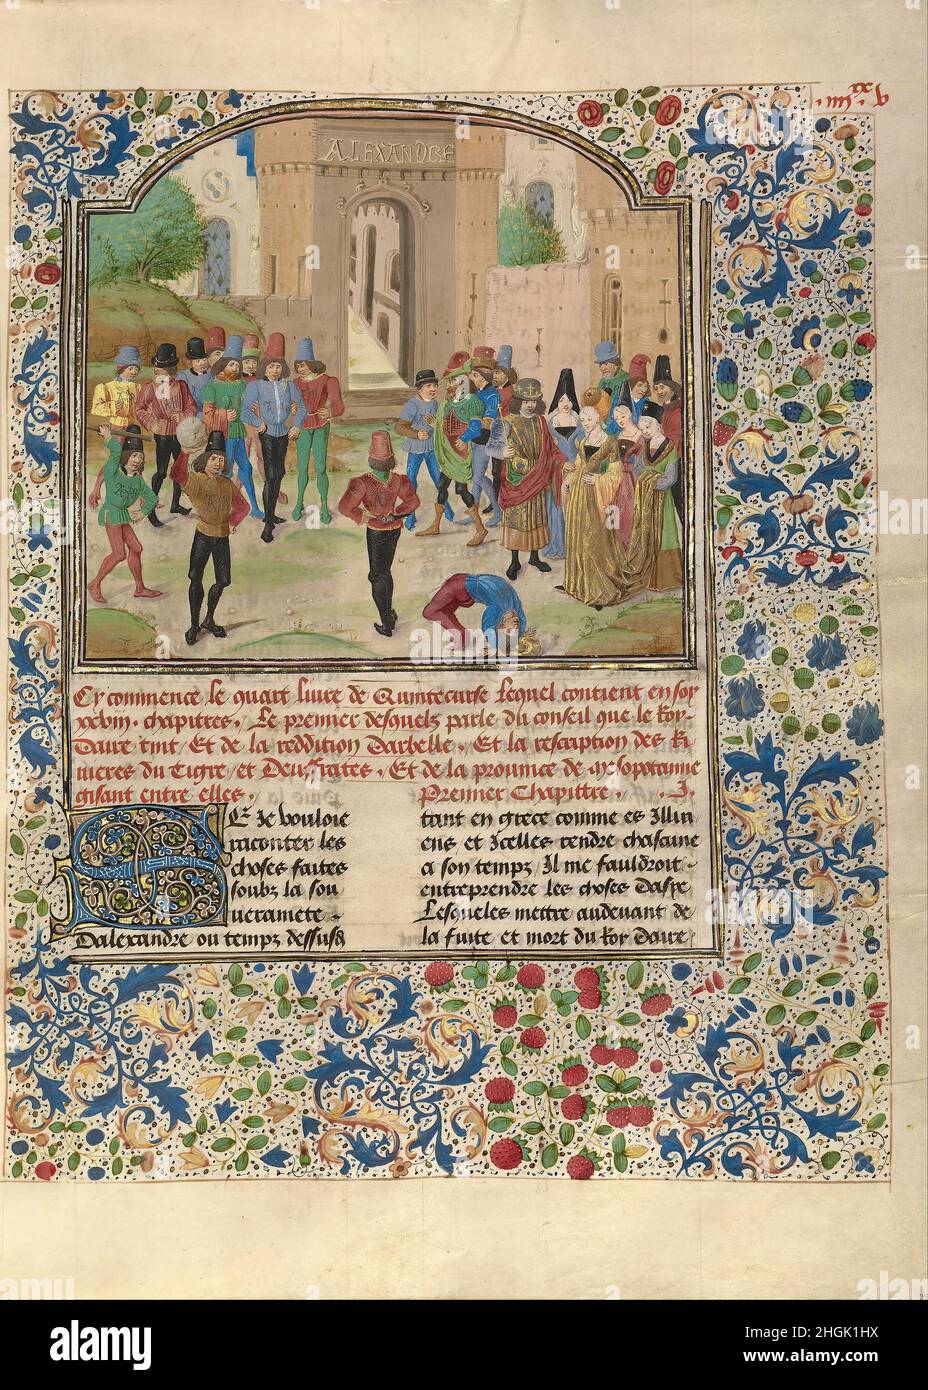 .iiii.xx v
ALEXANDRE
Cy commence le quart livre de Quintecurse lequel contient en soy
xxviii. chapitres. Le premier desquelz parle du conseil que le Roy
Daire tint, Et de la reddition Darbelle, Et la rescription des Ri
vieres du Tigre et Deuffrates, Et de la province de Mesopotamie
gisant entre elles. Premier Chapittre. .I.
SE Je vouloie
raconter les
choses faites
soubz la sou
verainete
Dalexandre ou temps dessusd
tant en grece comme es Illiri
ens et Icelles rendre chascune
a son temps Il me fauldroit
entreprendre les choses Dasie
Lesqueles mettre au devant de
la fuite et mort du Roy Daire
alamy
Image ID: 2HGK1HX
www.alamy.com